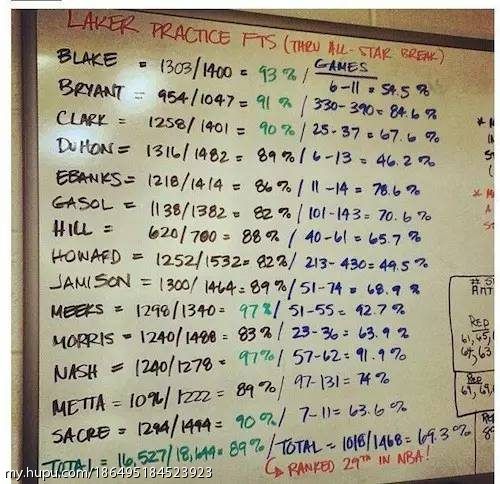 LAKER PRACTICE FTS (THRU ALL-STAR BREAK)
GAMES
BLAKE = 1303/1400 = 93% / 6-11 = 54.5%
BRYANT = 954/1047 = 91% / 330-390 = 84.6%
CLARK = 1258/1401 = 90% / 25-37 = 67.6%
DUHON = 1316/1482 = 89% / 6-13 = 46.2%
EBANKS = 1218/1414 = 86% / 11-14 = 78.6%
GASOL = 1138/1382 = 82% / 101-143 = 70.6%
HILL = 620/700 = 88% / 40-61 = 65.7%
HOWARD = 1252/1532 = 82% / 213-430 = 49.5%
JAMISON = 1300/1464 = 89% / 51-74 = 68.9%
MEEKS = 1298/1340 = 97% / 51-55 = 92.7%
MORRIS = 1240/1488 = 83% / 23-36 = 63.9%
NASH = 1240/1278 = 97% / 57-62 = 91.9%
METTA = 1096/1222 = 89% / 97-131 = 74%
SACRE = 1294/1444 = 90% / 7-11 = 63.6%
TOTAL = 16,527/18,644 = 89% / TOTAL = 1018/1468 = 69.3%
RANKED 29TH IN NBA!
RED
61, 65,
64, 63
RED
69, 69
my.hupu.com/186495184523923